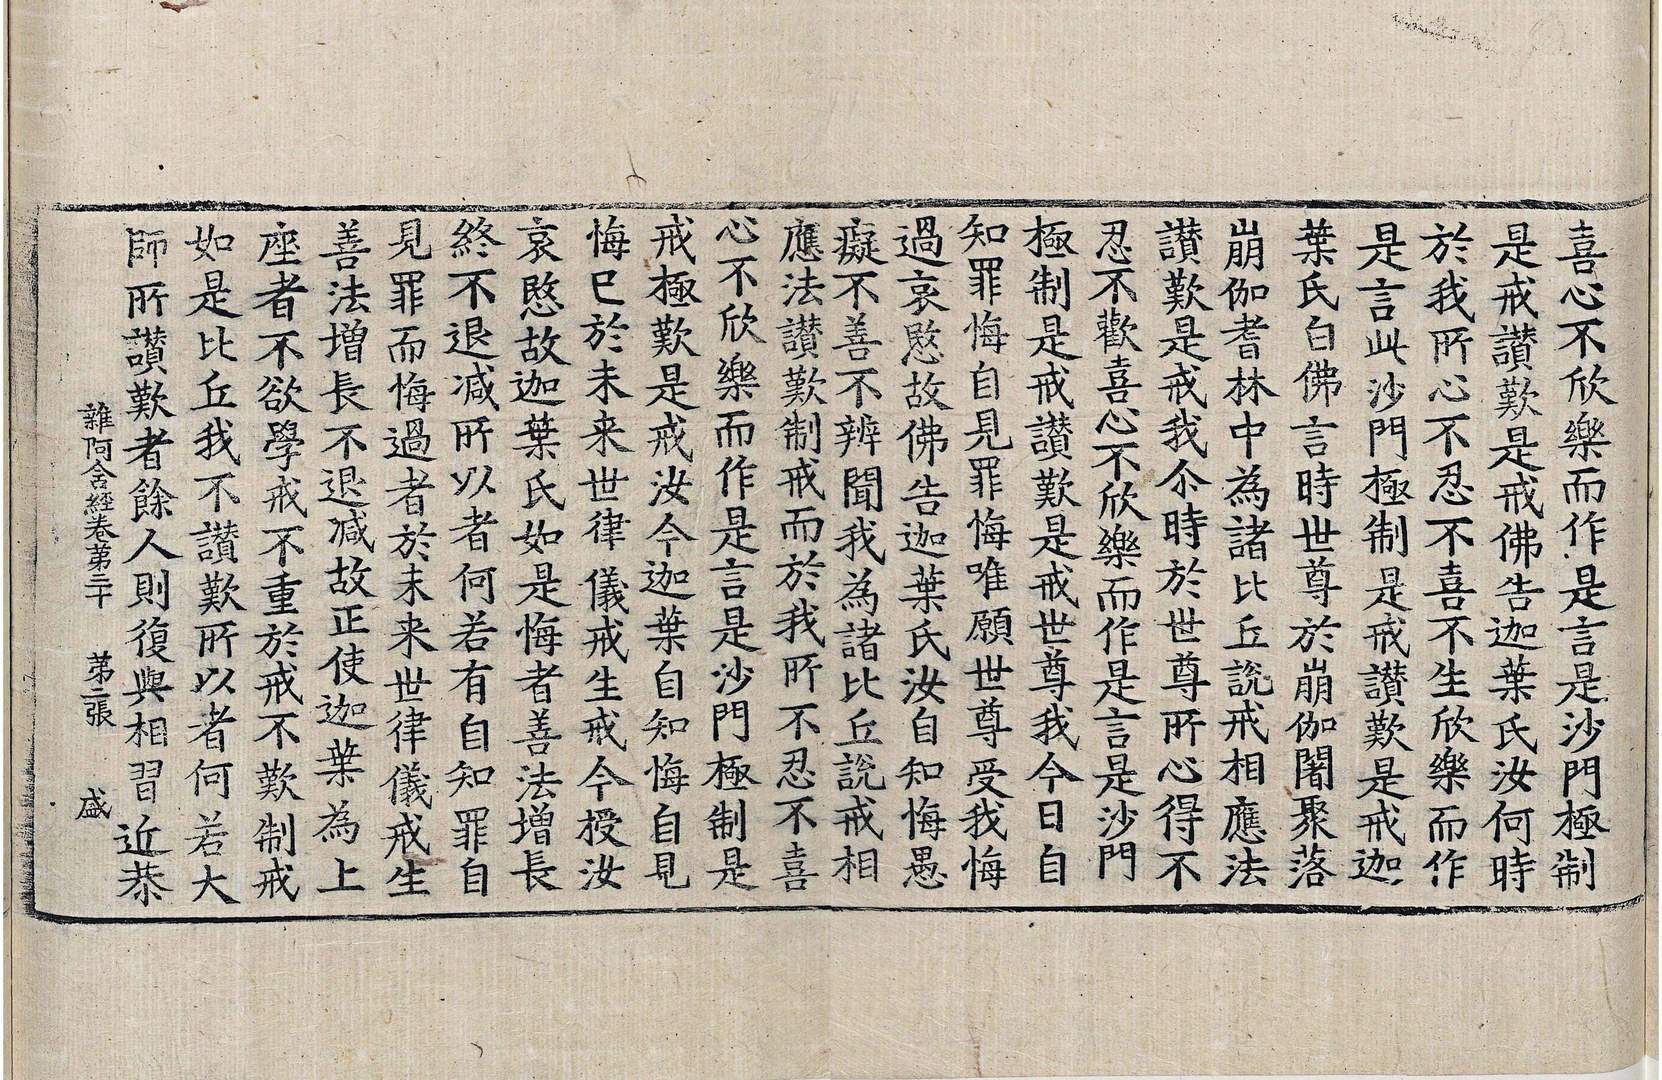 喜心不欣樂而作是言是沙門極制
是戒讃歎是戒佛告迦葉氏汝何時
於我所心不忍不喜不生欣樂而作
是言此沙門極制是戒讃歎是戒迦
葉氏白佛言時世尊於崩伽闍聚落
崩伽耆林中為諸比丘說戒相應法
讃歎是戒我尒時於世尊所心得不
忍不歡喜心不欣樂而作是言是沙門
極制是戒讃歎是戒世尊我今日自
知罪悔自見罪悔唯願世尊受我悔
過哀愍故佛告迦葉氏汝自知悔愚
癡不善不辨聞我為諸比丘說戒相
應法讃歎制戒而於我所不忍不喜
心不欣樂而作是言是沙門極制是
戒極歎是戒汝今迦葉自知悔自見
悔已於未来世律儀戒生戒今授汝
哀愍故迦葉氏如是悔者善法增長
終不退減所以者何若有自知罪自
見罪而悔過者於未来世律儀戒生
善法增長不退減故正使迦葉為上
座者不欲學戒不重於戒不歎制戒
如是比丘我不讃歎所以者何若大
師所讃歎者餘人則復與相習近恭
雜阿含經卷第三十　第二張　盛